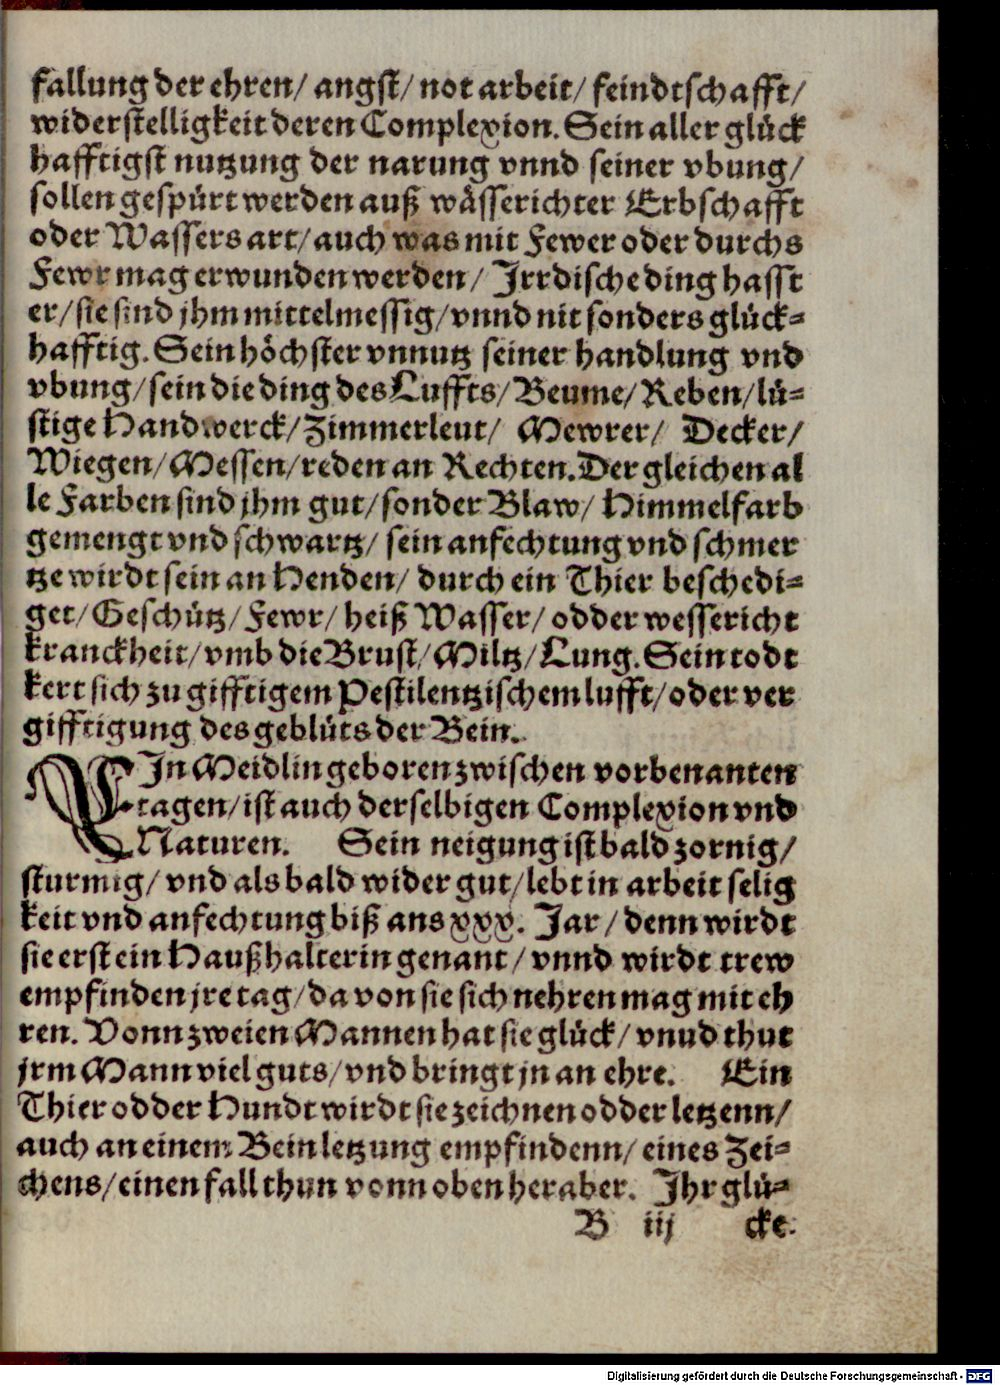 fallung der ehren/ angst/ not arbeit/ feindtschafft/
widerstelligkeit deren Complexion. Sein aller glück
hafftigst nutzung der narung vnnd seiner vbung/
sollen gespürt werden auß wässerichter Erbschafft
oder Wassers art/ auch was mit Fewer oder durchs
Fewr mag erwunden werden/ Jrrdische ding hasst
er/ sie sind jhm mittelmessig/ vnnd nit sonders glück-
hafftig. Sein höchster vnnutz seiner handlung vnd
vbung/ sein die ding des Luffts/ Beume/ Reben/ lü-
stige Handwerck/ Zimmerleut/ Mewrer/ Decker/
Wiegen/ Messen/ reden an Rechten. Der gleichen al
le Farben sind jhm gut/ sonder Blaw/ Himmelfarb
gemengt vnd schwartz/ sein anfechtung vnd schmer
tze wirdt sein an Henden/ durch ein Thier beschedi-
get/ Geschütz/ Fewr/ heiß Wasser/ odder wessericht
kranckheit/ vmb die Brust/ Miltz/ Lung. Sein todt
kert sich zu gifftigem Pestilentzischem lufft/ oder ver
gifftigung des geblüts der Bein.
EJn Meidlin geboren zwischen vorbenanten
tagen/ ist auch derselbigen Complexion vnd
Naturen. Sein neigung ist bald zornig/
sturmig/ vnd als bald wider gut/ lebt in arbeit selig
keit vnd anfechtung biß ans xxx. Jar/ denn wirdt
sie erst ein Haußhalterin genant/ vnnd wirdt trew
empfinden jre tag/ da von sie sich nehren mag mit eh
ren. Vonn zweien Mannen hat sie glück/ vnud thut
jrm Mann viel guts/ vnd bringt jn an ehre. Ein
Thier odder Hundt wirdt sie zeichnen odder letzenn/
auch an einem Bein letzung empfindenn/ eines Zei-
chens/ einen fall thun vonn oben heraber. Jhr glü-
B iij cke.
Digitalisierung gefördert durch die Deutsche Forschungsgemeinschaft - DFG